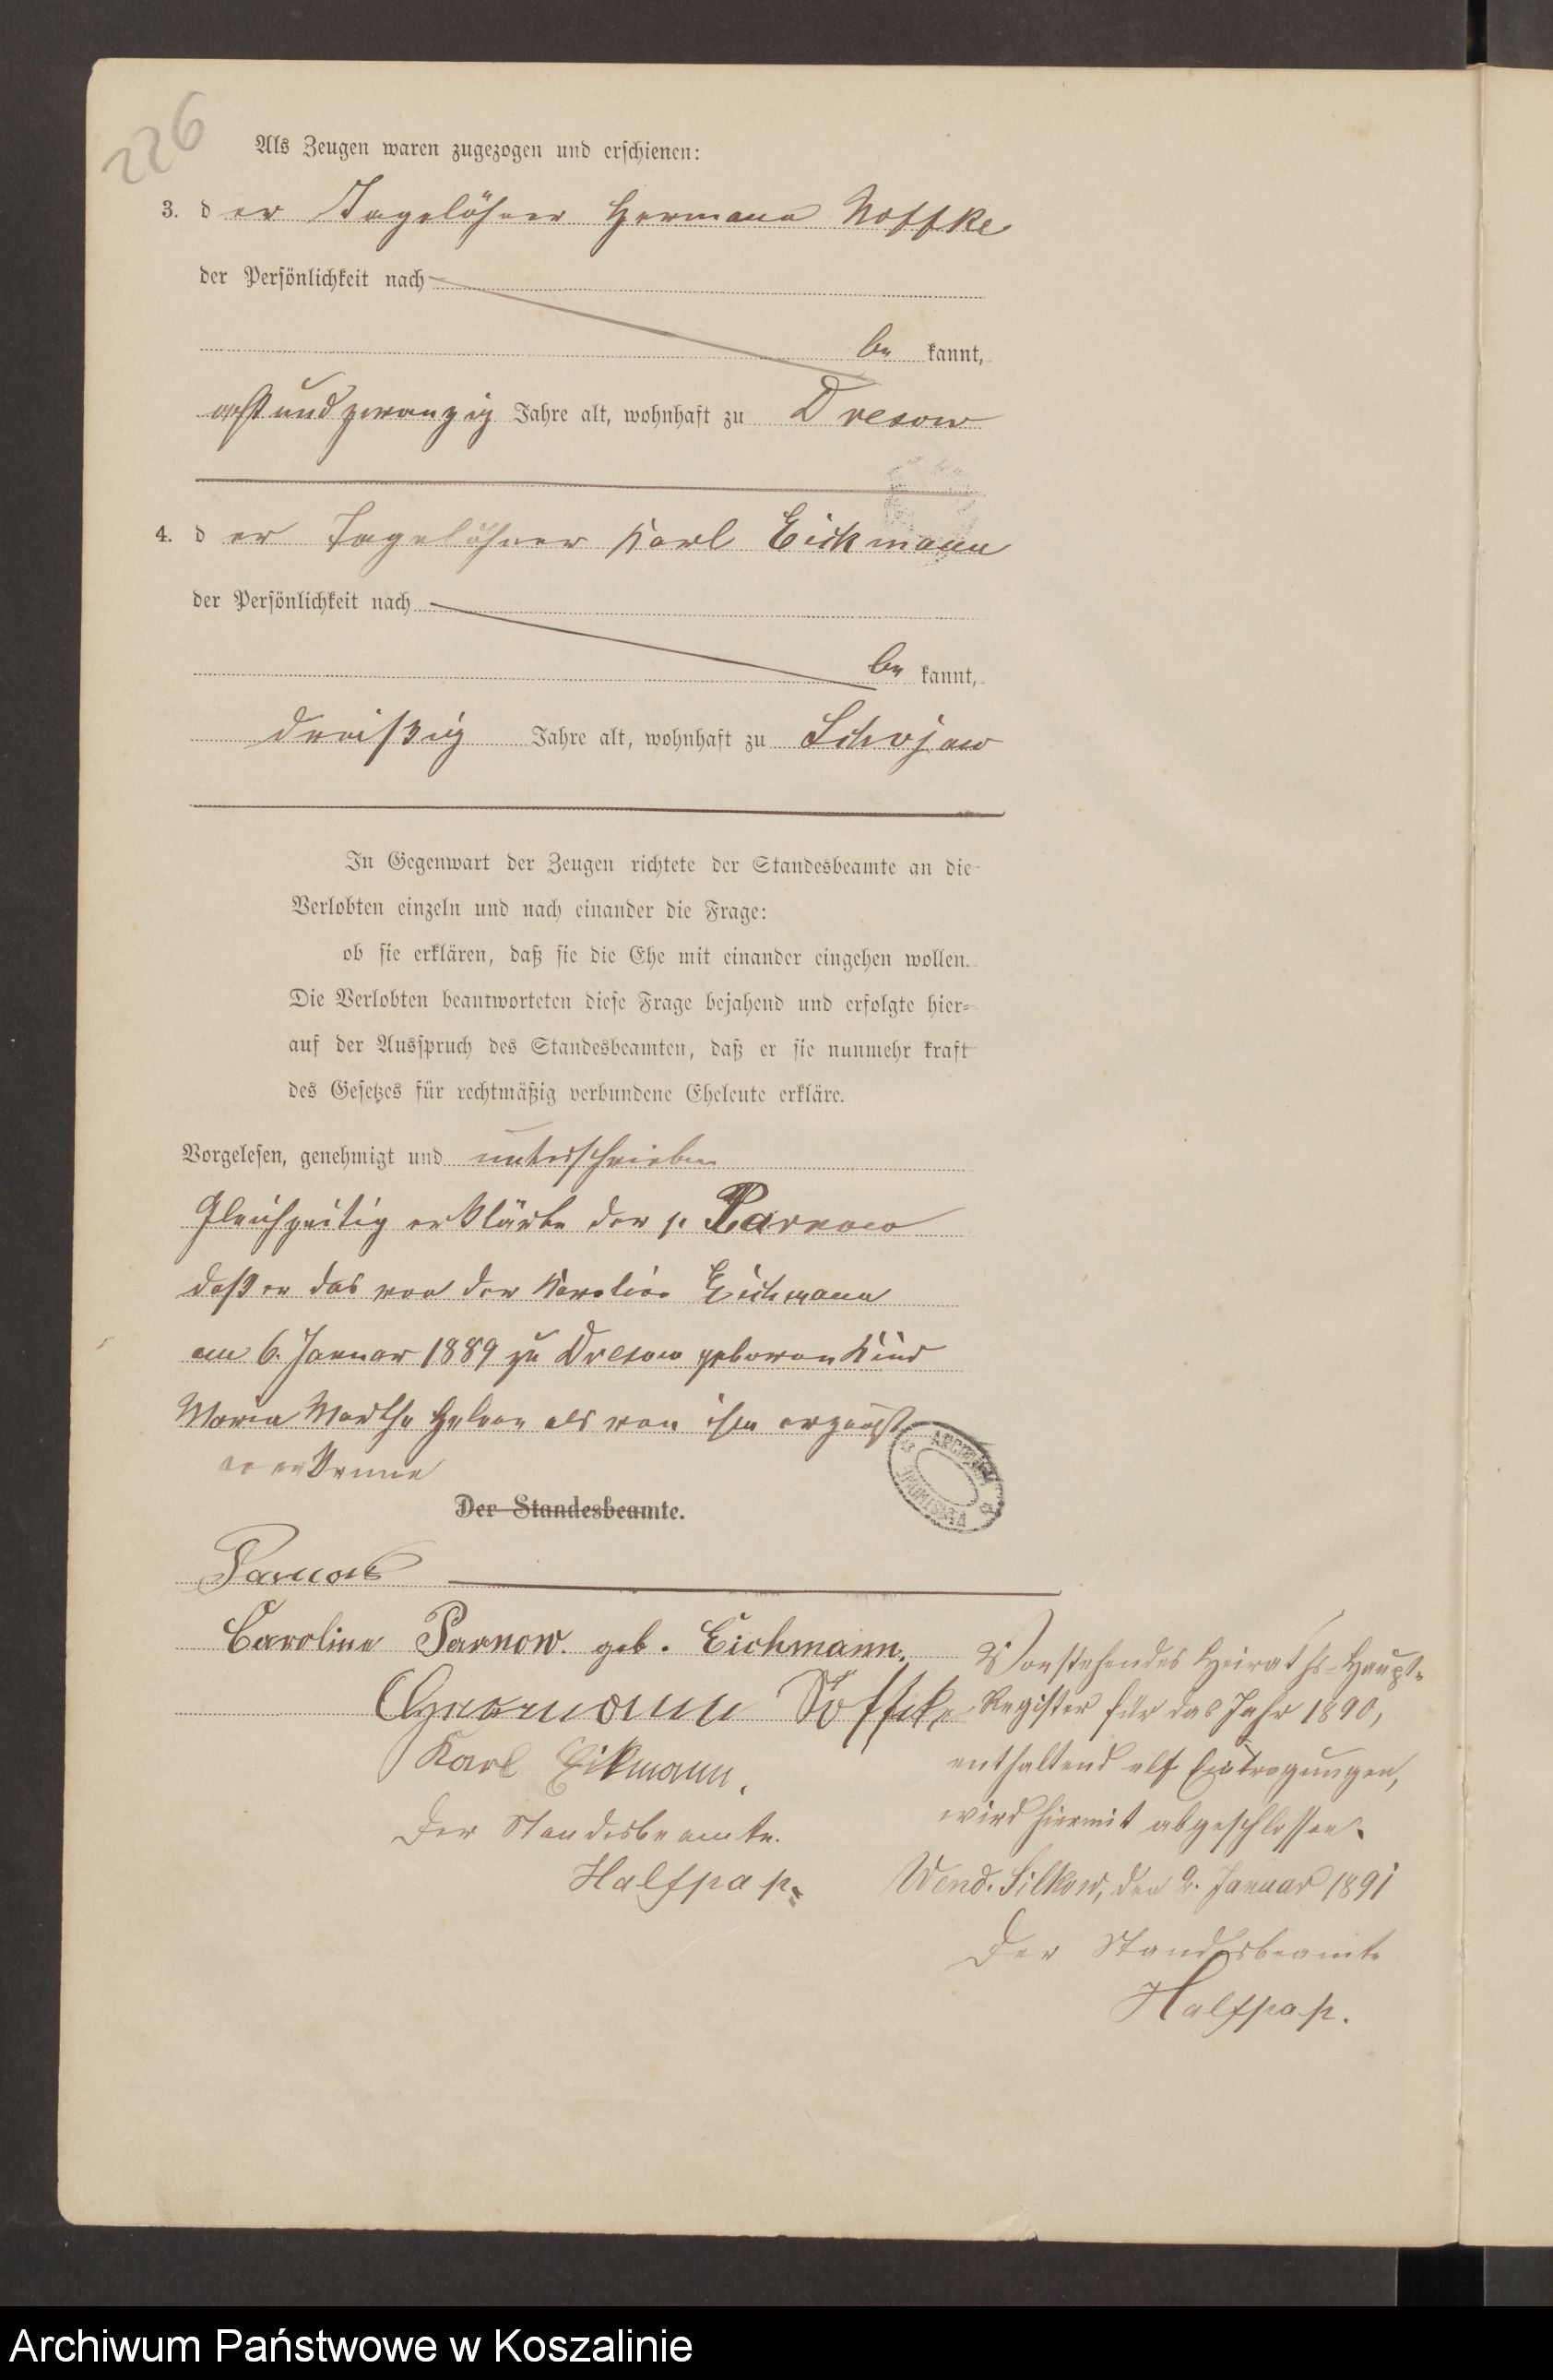 226
Als Zeugen waren zugezogen und erschienen:
3. der Tagelöhner Hermann Noffke
der Persönlichkeit nach
be kannt,
achtundzwanzig Jahre alt, wohnhaft zu Dresow
4. der Tagelöhner Karl Eickmann
der Persönlichkeit nach
be kannt,
dreißig Jahre alt, wohnhaft zu Schojow
In Gegenwart der Zeugen richtete der Standesbeamte an die
Verlobten einzeln und nach einander die Frage:
ob sie erklären, daß sie die Ehe mit einander eingehen wollen.
Die Verlobten beantworteten diese Frage bejahend und erfolgte hier-
auf der Ausspruch des Standesbeamten, daß er sie nunmehr kraft
des Gesetzes für rechtmäßig verbundene Eheleute erkläre.
Vorgelesen, genehmigt und unterschrieben
Gleichzeitig erklärte der p. Parnow
daß er das von der Karoline Eichmann
am 6. Januar 1889 zu Dresow geboren Kind
Maria Martha Helene als von ihm erzeugt
an erkenne
Der Standesbeamte.
Parnow
Caroline Parnow. geb. Eichmann.
Hermann Noffke
Karl Eikmann.
Der Standesbeamte.
Halfpap.
Vorstehendes Heiraths-Haupt-
Register für das Jahr 1890,
enthaltend elf Eintragungen,
wird hiermit abgeschlossen.
Wend. Silkow, den 2. Januar 1891
Der Standesbeamte
Halfpap.
Archiwum Państwowe w Koszalinie